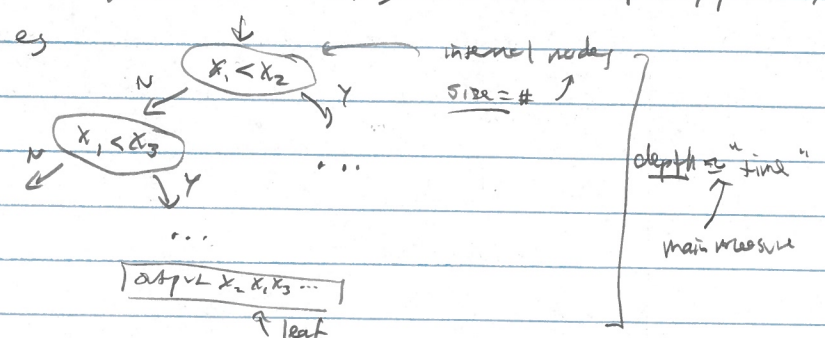 eg
x₁ < x₂
internal nodes
size = #
N
Y
x₁ < x₃
N
Y
...
depth = "time"
main measure
...
output x₂ x₁ x₃ ...
leaf